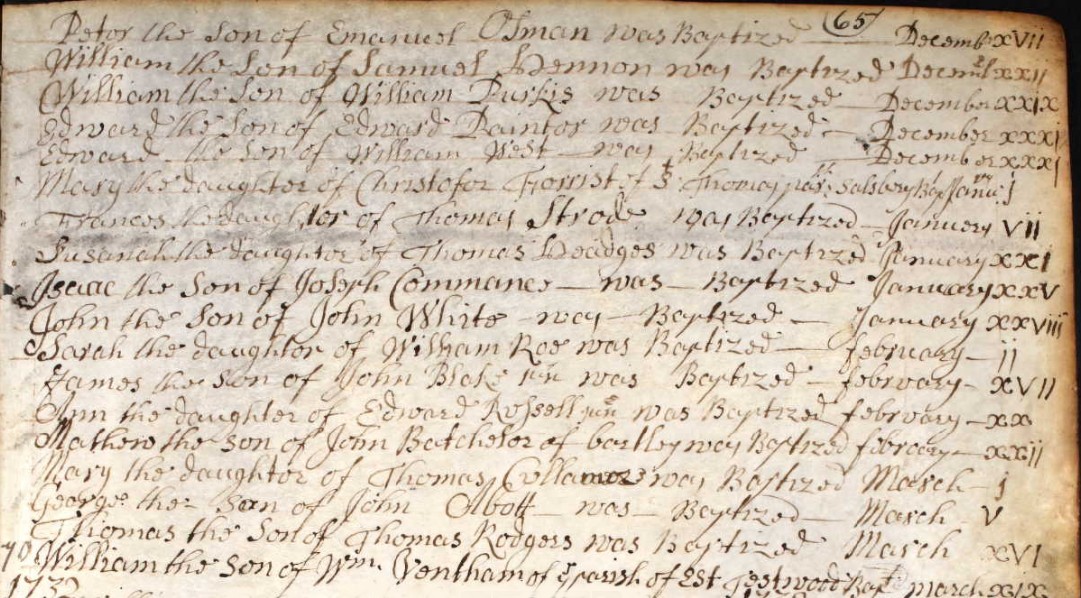 65
Peter the Son of Emanuel Osman was Baptized December XVII
William the Son of Samuel Hennon was Baptized Decembr XXII
William the Son of William Purkis was Baptized December XXIX
Edward the Son of Edward Painter was Baptized December XXXI
Edward the Son of William West was Baptized December XXXI
Mary the daughter of Christofor Forrist of St Thomas par: Salsbery Bap Janu: j
Frances the daughter of Thomas Strode was Baptized January VII
Susanah the daughter of Thomas Headges was Baptized January XXI
Isaac the Son of Joseph Commance was Baptized January XXV
John the Son of John White was Baptized January XXVIII
Sarah the daughter of William Roe was Baptized february ij
James the Son of John Blake jun was Baptized february XVII
Ann the daughter of Edward Rossell jun was Baptized february XX
Mathew the Son of John Batchelor of bartley was Baptized february XXII
Mary the daughter of Thomas was Baptized March j
George the Son of John Abott was Baptized March V
Thomas the Son of Thomas Rodgers was Baptized March XVI
William the Son of Wm. Ventham of ye parish of Est Bapt march XIX